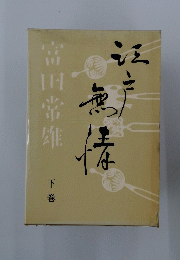 江戸無情
富田常雄
下巻